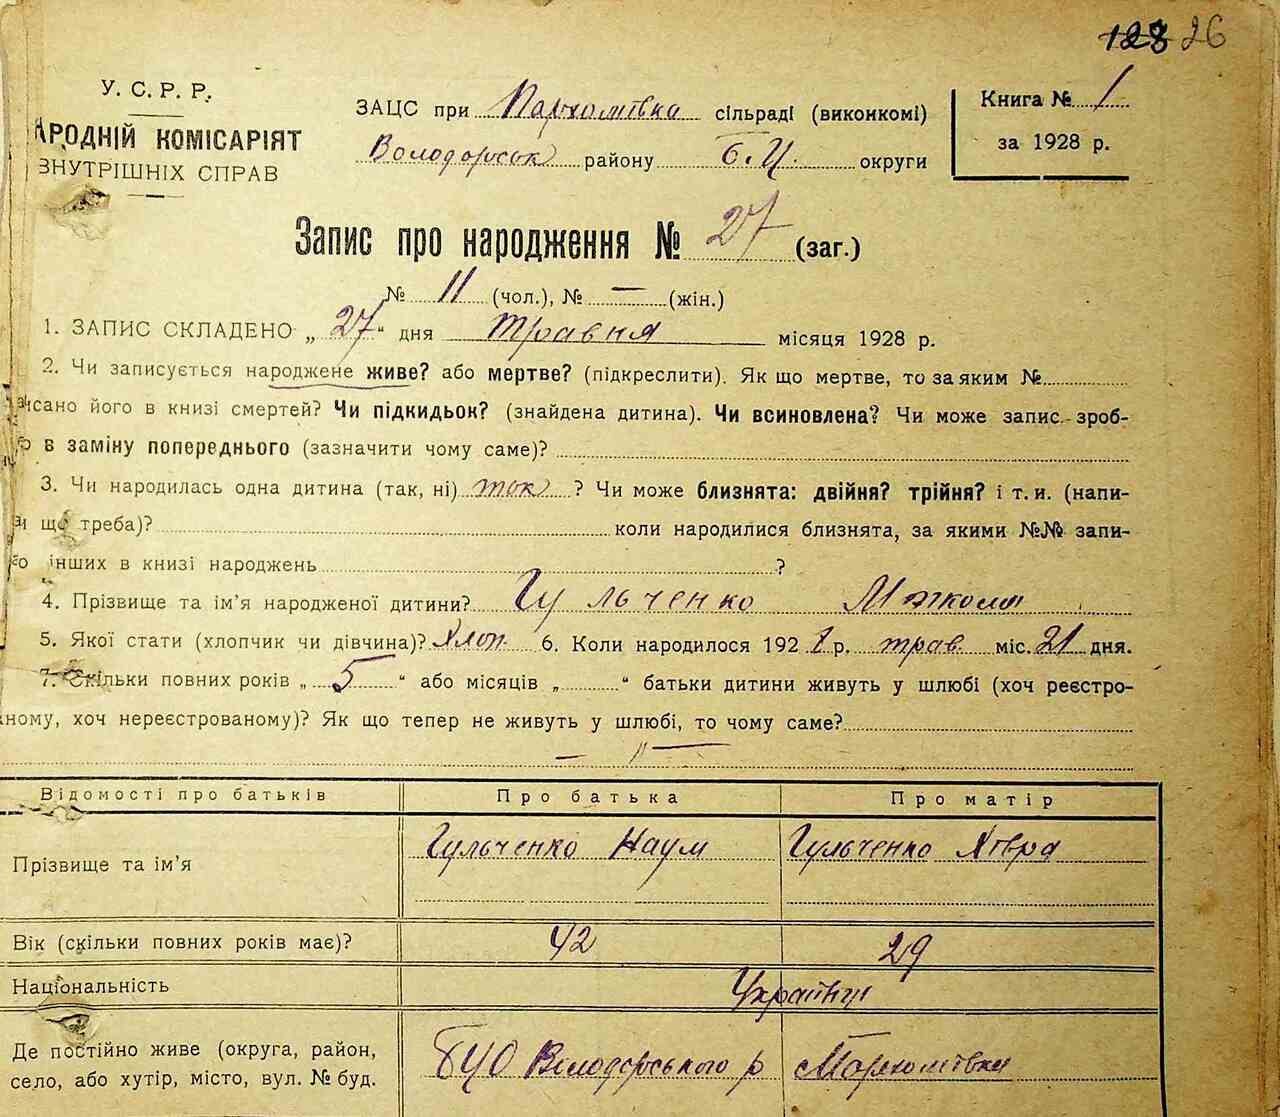 128 26
У. С. Р. Р.
АРОДНІЙ КОМІСАРІЯТ
ВНУТРІШНІХ СПРАВ
ЗАЦС при Пархомівка сільраді (виконкомі)
Володарськ району Б.Ц. округи
Книга № 1
за 1928 р.
Запис про народження № 27 (заг.)
№ 11 (чол.), № — (жін.)
1. ЗАПИС СКЛАДЕНО „ 27 “ дня травня місяця 1928 р.
2. Чи записується народжене живе? або мертве? (підкреслити). Як що мертве, то за яким №
писано його в книзі смертей? Чи підкидьок? (знайдена дитина). Чи всиновлена? Чи може запис зроб-
о в заміну попереднього (зазначити чому саме)?
3. Чи народилась одна дитина (так, ні) так ? Чи може близнята: двійня? трійня? і т. и. (напи-
и що треба)? коли народилися близнята, за якими №№ запи-
о інших в книзі народжень ?
4. Прізвище та ім’я народженої дитини? Гульченко Микола
5. Якої стати (хлопчик чи дівчина)? Хлоп. 6. Коли народилося 192 8 р. трав. міс. 21 дня.
7. Скільки повних років „ 5 “ або місяців „ “ батьки дитини живуть у шлюбі (хоч реєстро-
аному, хоч нереєстрованому)? Як що тепер не живуть у шлюбі, то чому саме?
— // —
Відомості про батьків Про батька Про матір
Прізвище та ім’я Гульченко Наум Гульченко Хівра
Вік (скільки повних років має)? 42 29
Національність Українці
Де постійно живе (округа, район, БЦО Володарського р Пархомівка
село, або хутір, місто, вул. № буд.